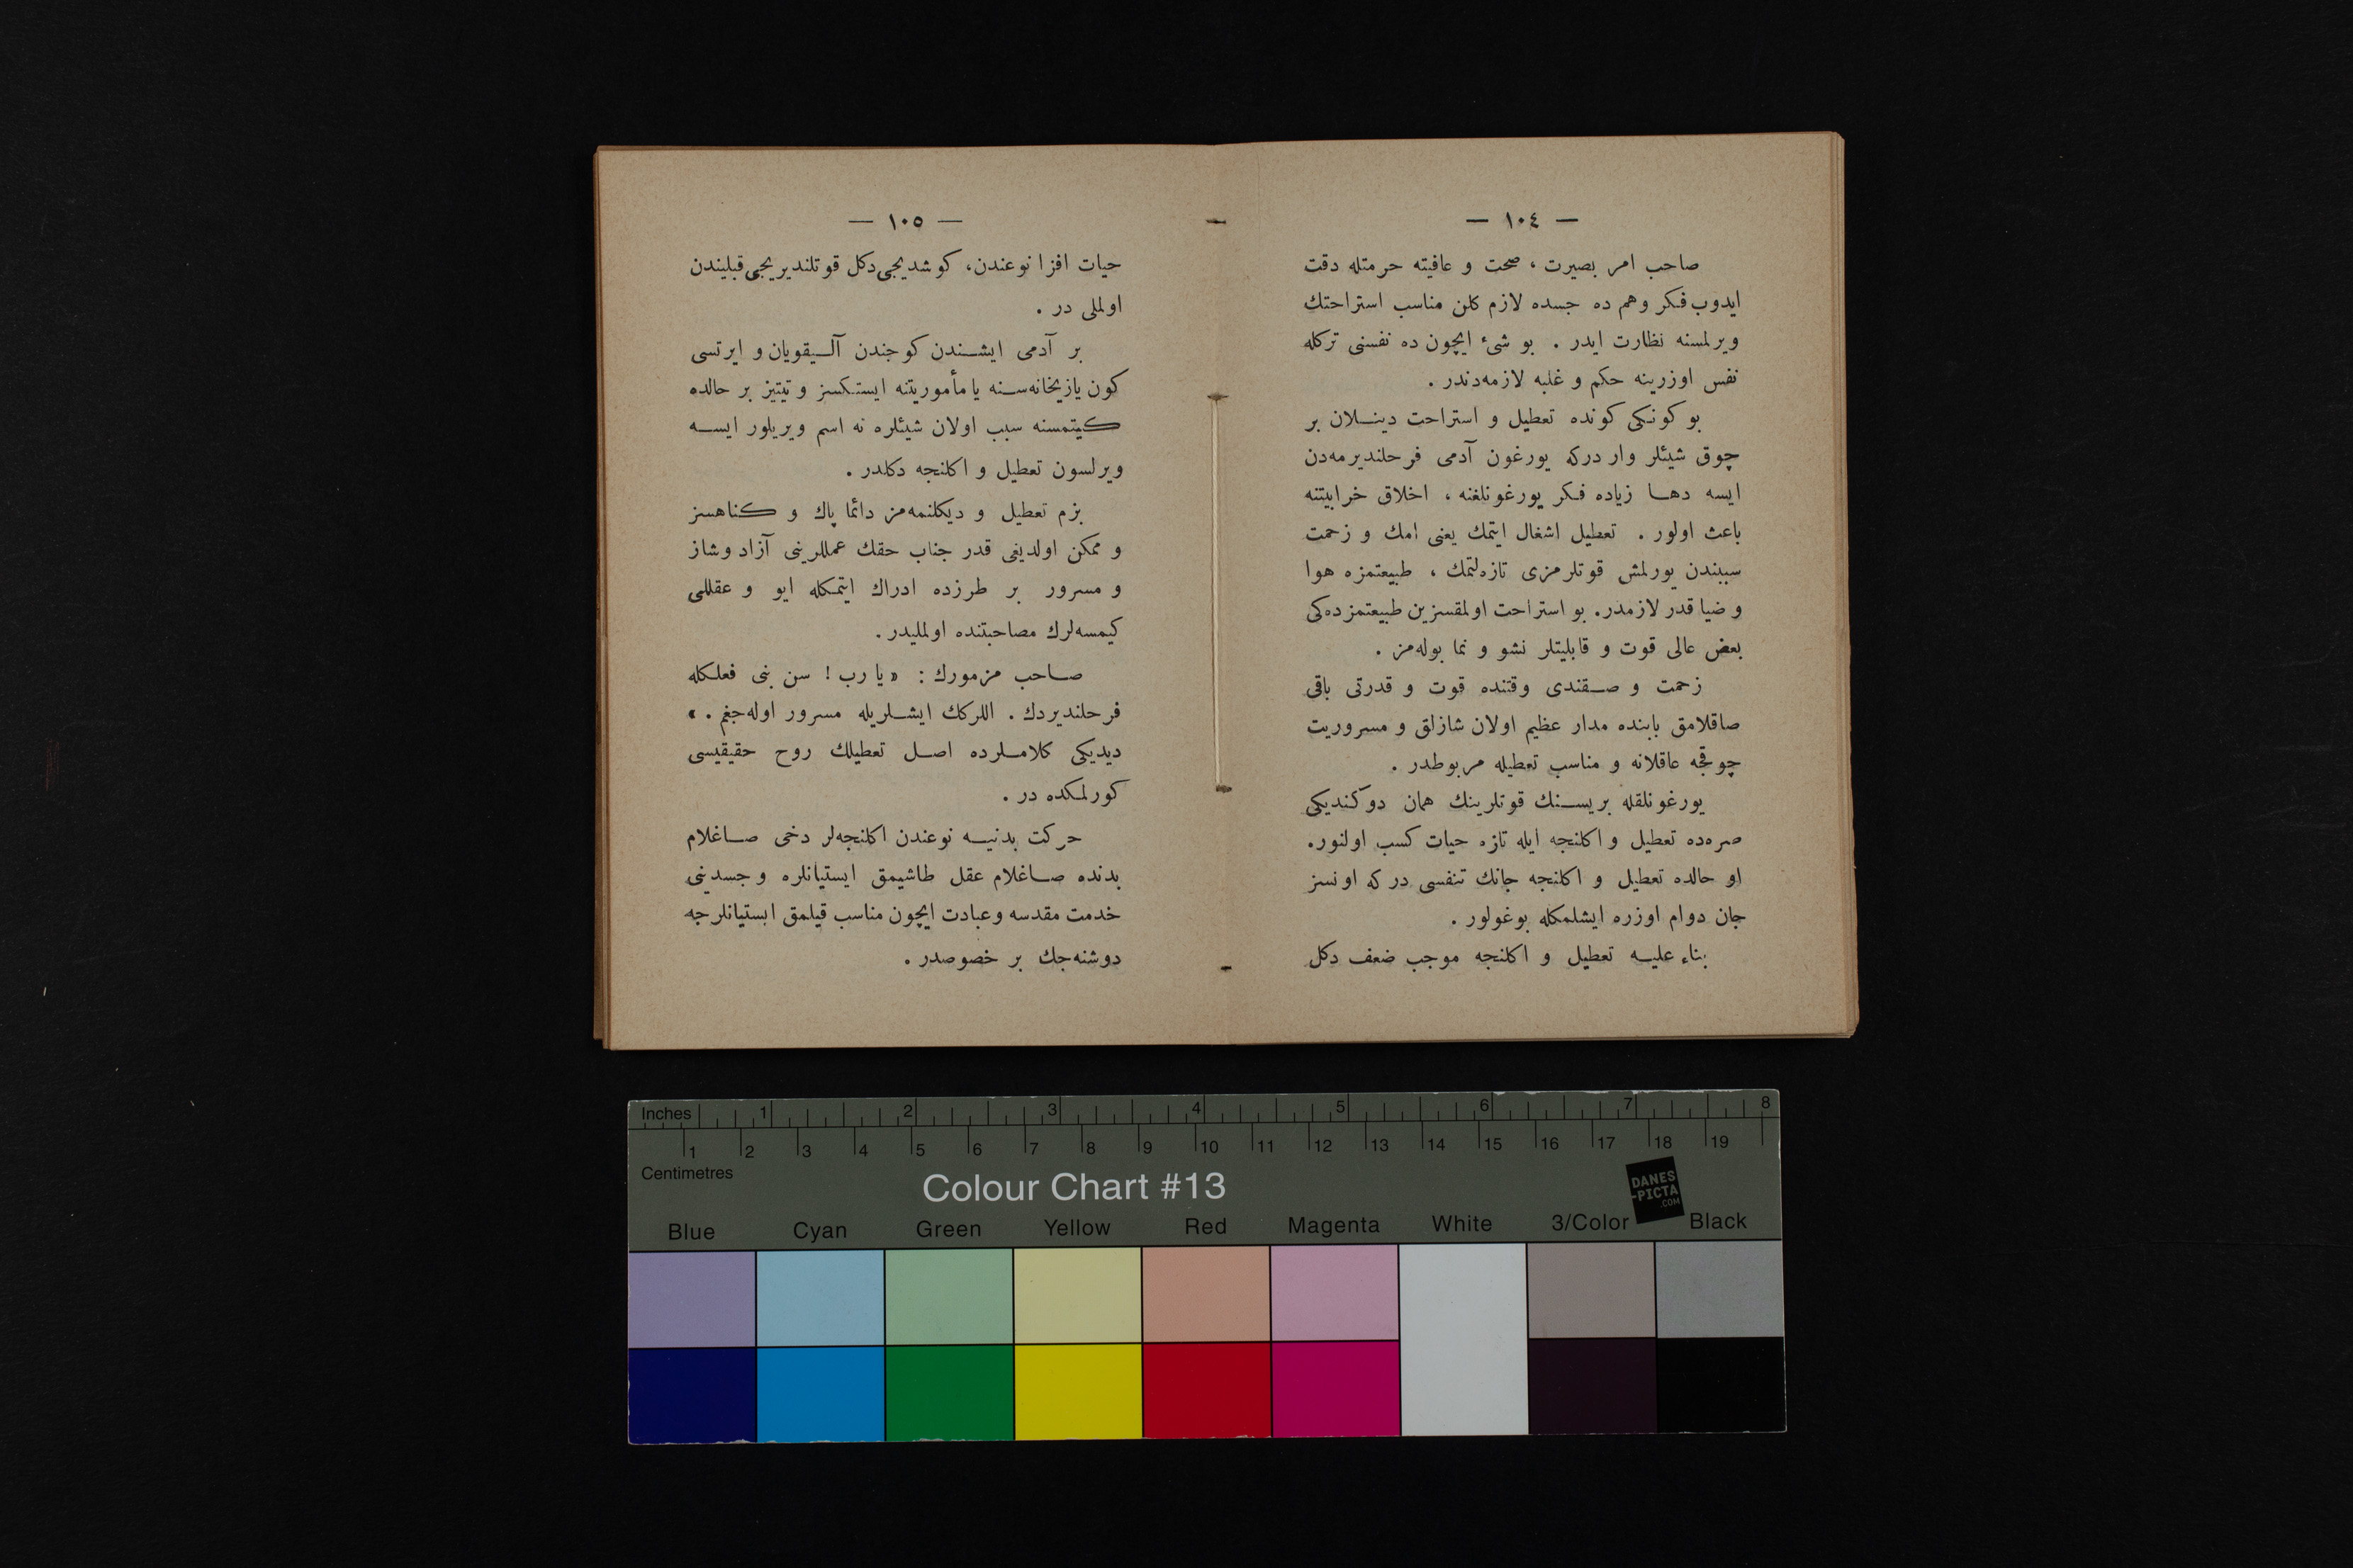 — ١٠٤ —
صاحب امر بصيرت ، صحت و عافيته حرمتله دقت
ايدوب فكر وهم ده جسده لازم كلن مناسب استراحتك
ويرلمسنه نظارت ايدر . بو شئ ايچون ده نفسنى تركله
نفس اوزرينه حكم و غلبه لازمه‌دندر .
بو كونكى كونده تعطيل و استراحت دينلان بر
چوق شيئلر وار دركه يورغون آدمى فرحلنديرمه‌دن
ايسه دها زياده فكر يورغونلغنه ، اخلاق خرابيتنه
باعث اولور . تعطيل اشغال ايتمك يعنى امك و زحمت
سببندن يورلمش قوتلرمزى تازه‌لتمك ، طبيعتمزه هوا
و ضيا قدر لازمدر. بو استراحت اولمقسزين طبيعتمزده‌كى
بعض عالى قوت و قابليتلر نشو و نما بوله‌مز .
زحمت و صقندى وقتنده قوت و قدرتى باقى
صاقلامق بابنده مدار عظيم اولان شازلق و مسروريت
چوقجه عاقلانه و مناسب تعطيله مربوطدر .
يورغونلقله بريسنك قوتلرينك همان دوكنديكى
صره‌ده تعطيل و اكلنجه ايله تازه حيات كسب اولنور.
او حالده تعطيل و اكلنجه جانك تنفسى دركه اونسز
جان دوام اوزره ايشلمكله بوغولور .
بناء عليه تعطيل و اكلنجه موجب ضعف دكل
— ١٠٥ —
حيات افزا نوعندن، كوشديجى دكل قوتلنديريجى قبليندن
اولملى در .
بر آدمى ايشندن كوجندن آليقويان و ايرتسى
كون يازيخانه‌سنه يا مأموريتنه ايستكسز و تيتيز بر حالده
كيتمسنه سبب اولان شيئلره نه اسم ويريلور ايسه
ويرلسون تعطيل و اكلنجه دكلدر .
بزم تعطيل و ديكلنمه‌مز دائما پاك و كناهسز
و ممكن اولديغى قدر جناب حقك عمللرينى آزاد و شاز
و مسرور بر طرزده ادراك ايتمكله ايو و عقللى
كيمسه‌لرك مصاحبتنده اولمليدر .
صاحب مزمورك : « يا رب ! سن بنى فعلكله
فرحلنديردك . اللركك ايشلريله مسرور اوله‌جغم . »
ديديكى كلاملرده اصل تعطيلك روح حقيقيسى
كورلمكده در .
حركت بدنيه نوعندن اكلنجه‌لر دخى صاغلام
بدنده صاغلام عقل طاشيمق ايستيانلره و جسدينى
خدمت مقدسه وعبادت ايچون مناسب قيلمق ايستيانلرجه
دوشنه‌جك بر خصوصدر .
Inches 1 2 3 4 5 6 7 8
1 2 3 4 5 6 7 8 9 10 11 12 13 14 15 16 17 18 19
Centimetres
Colour Chart #13
DANES
-PICTA
.COM
Blue Cyan Green Yellow Red Magenta White 3/Color Black